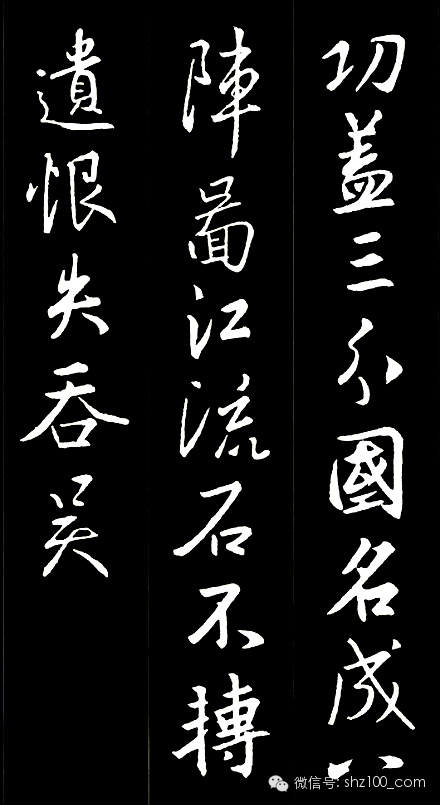 功盖三分國名成八
陣啚江流石不轉
遺恨失吞吳
微信号: shz100_com